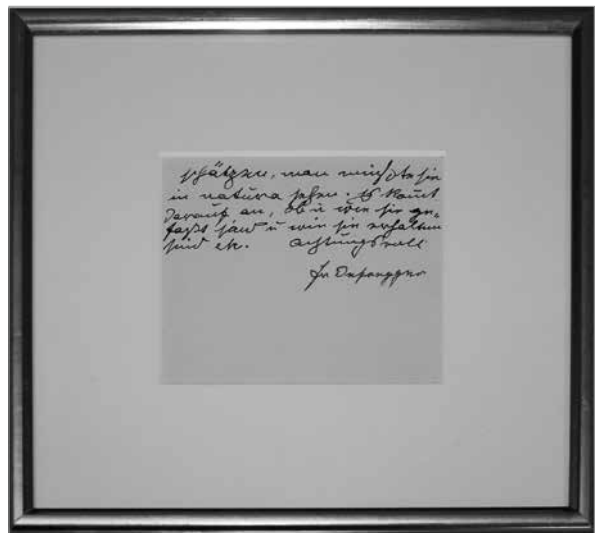 schätzen, man müßte sie
in natura sehen. Es kom̄t
darauf an, ob u wie sie ge-
faßt sind u wie sie erhalten
sind etc. Achtungsvoll
Fr Defregger